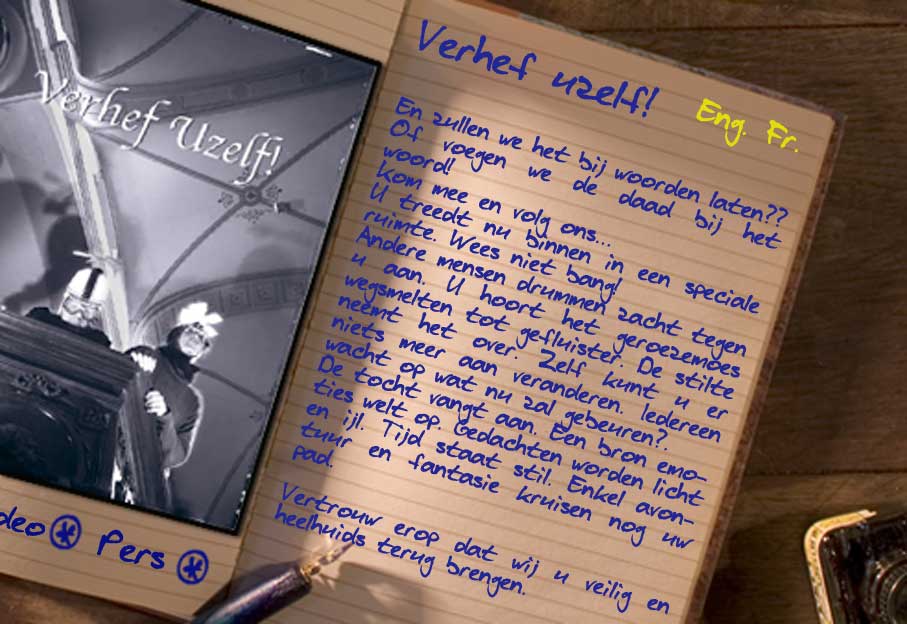 Verhef Uzelf!
deo
Pers
Verhef uzelf!
Eng. Fr.
En zullen we het bij woorden laten??
Of voegen we de daad bij het
woord!
Kom mee en volg ons...
U treedt nu binnen in een speciale
ruimte. Wees niet bang!
Andere mensen drummen zacht tegen
u aan. U hoort het geroezemoes
wegsmelten tot gefluister. De stilte
neemt het over. Zelf kunt u er
niets meer aan veranderen. Iedereen
wacht op wat nu zal gebeuren?
De tocht vangt aan. Een bron emo-
ties welt op. Gedachten worden licht
en ijl. Tijd staat stil. Enkel avon-
tuur en fantasie kruisen nog uw
pad.
Vertrouw erop dat wij u veilig en
heelhuids terug brengen.